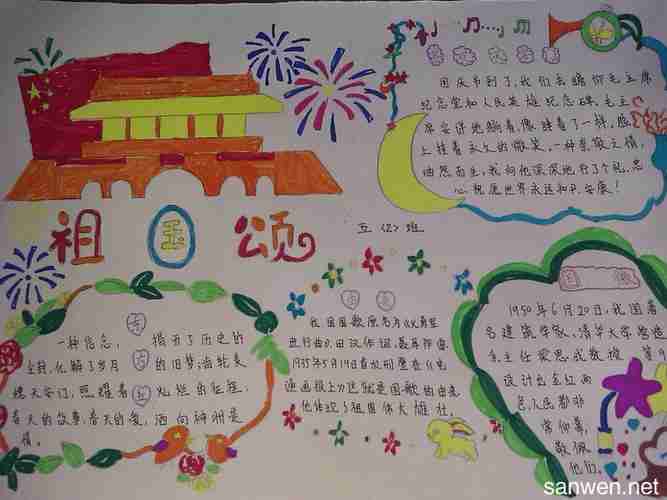 国庆节到了,我们去瞻仰毛主席
纪念堂和人民英雄纪念碑,毛主
席安详地躺着,像睡着了一样,脸
上挂着永久的微笑,一种崇敬之情
油然而生,我向他深深地行了个礼,忠
心祝愿世界永远和平、安康!
祖国颂
五〈2〉班
一种信念,
指亮了历史的
化解了岁月
的旧梦;
天安门,照耀着
灿烂的征程,
春天的故事,春天的爱,洒向神洲是
情。
我国国歌原名为《义勇军
进行曲》,由汉作词,聂耳作曲
1935年5月
这就是国歌的由来
他体现了祖国伟大雄壮。
国徽
1950年6月20日,我国著
名建筑学家,清华大学营造
系主任梁思成教授
设计出金红两
色,人民都非
常仰慕,
敬佩
他们.
sanwen.net